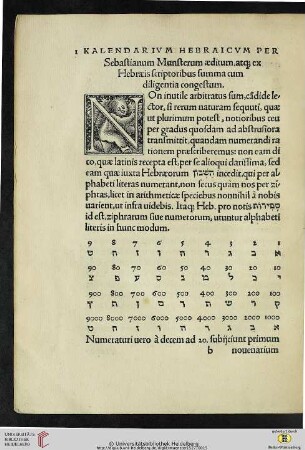 1 KALENDARIVM HEBRAICVM PER
Sebastianum Munsterum æditum, atq; ex
Hebræis scriptoribus summa cum
diligentia congestum.
NOn inutile arbitratus sum, cādide le-
ctor, si rerum naturam sequuti, quæ
ut plurimum potest, notioribus ceu
per gradus quosdam ad abstrusiora
transmittit, quandam numerandi ra
tionem præscriberemus: non eam di
co, quæ latinis recepta est, per se alioqui clarissima, sed
eam quæ iuxta Hebræorum חשבון incedit, qui per al-
phabeti literas numerant, non secus quàm nos per zi-
phras, licet in arithmeticæ speciebus nonnihil à nobis
uarient, ut infra uidebis. Itaq; Heb. pro notis ספירות
id est, ziphrarum siue numerorum, utuntur alphabeti
literis in hunc modum.
9 8 7 6 5 4 3 2 1
א ב ג ד ה ו ז ח ט
90 80 70 60 50 40 30 20 10
י כ ל מ נ ס ע פ צ
900 800 700 600 500 400 300 200 100
ק ר ש ת ך ם ן ף ץ
9000 8000 7000 6000 5000 4000 3000 2000 1000
א ב ג ד ה ו ז ח ט
Numeraturi uero à decem ad 20. subijciunt primum
b nouenarium
UNIVERSITÄTS-
BIBLIOTHEK
HEIDELBERG
© Universitätsbibliothek Heidelberg